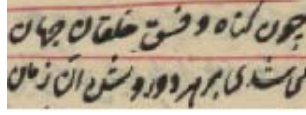 چون گناه و فسق خلقان جهان
می شدی بر هر دو روشن آن زمان